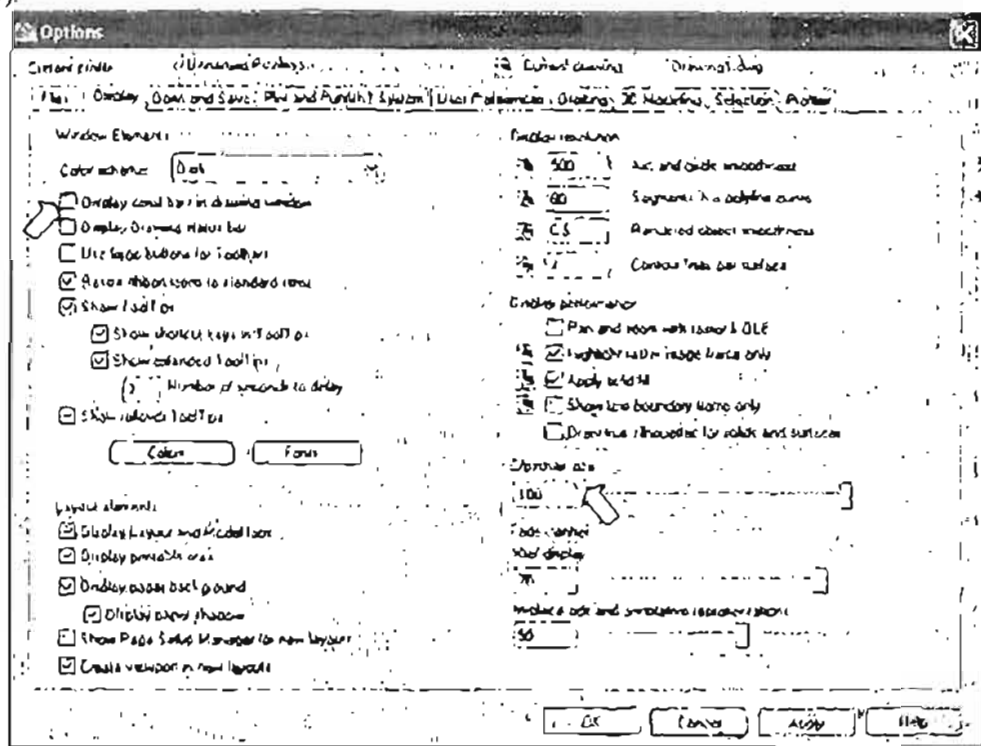 Options
Current profile: <<Unnamed Profile>> Current drawing: Drawing1.dwg
Files Display Open and Save Plot and Publish System User Preferences Drafting 3D Modeling Selection Profiles
Window Elements
Color scheme: Dark
Display scroll bars in drawing window
Display Drawing status bar
Use large buttons for Toolbars
Resize ribbon icons to standard sizes
Show ToolTips
Show shortcut keys in ToolTips
Show extended ToolTips
Number of seconds to delay
Show rollover ToolTips
Colors Fonts
Layout elements
Display Layout and Model tabs
Display printable area
Display paper background
Display paper shadow
Show Page Setup Manager for new layouts
Create viewport in new layouts
Display resolution
Arc and circle smoothness
Segments in a polyline curve
Rendered object smoothness
Contour lines per surface
Display performance
Pan and zoom with raster & OLE
Highlight raster image frame only
Apply solid fill
Show text boundary frame only
Draw true silhouettes for solids and surfaces
Crosshair size
100
Fade control
Xref display
In-place edit and annotative representations
50
OK Cancel Apply Help